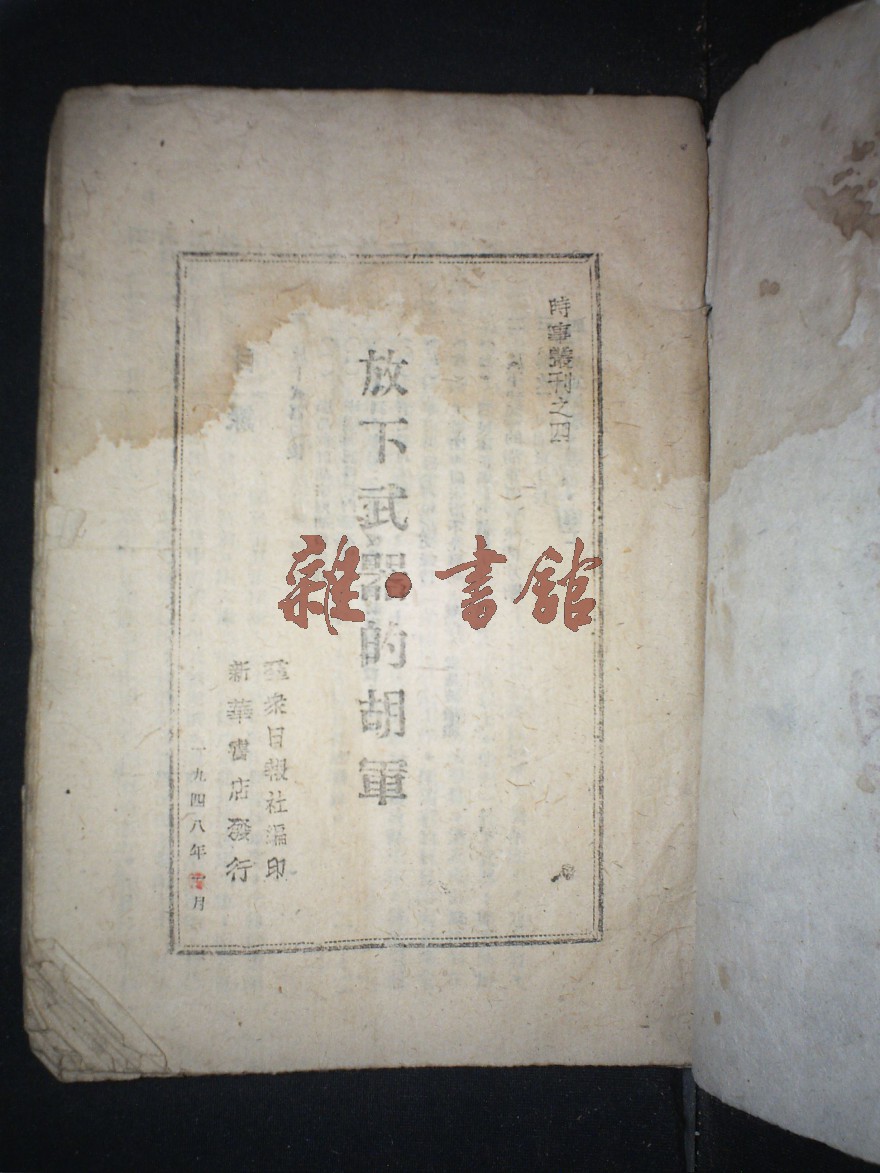 時事叢刊之四
放下武器的胡軍
羣衆日報社編印
新華書店發行
一九四八年 月
雜·書館